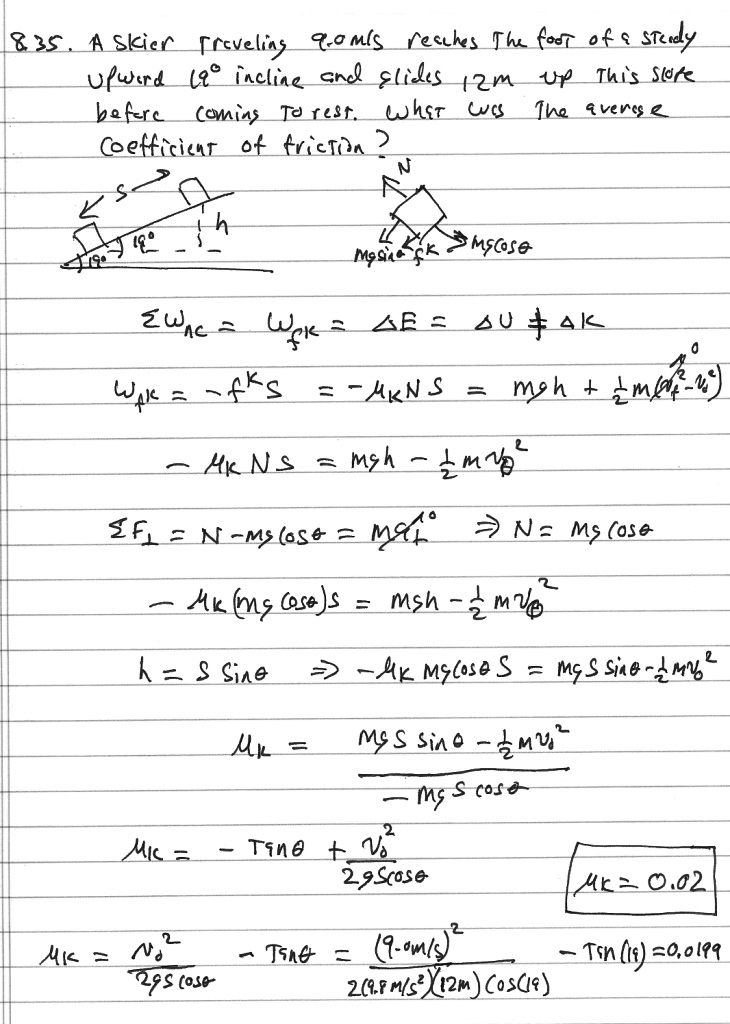 8.35. A skier Traveling 9.0m/s reaches The foot of a steady
upward 19° incline and glides 12m up This slope
before coming To rest. What was The average
coefficient of friction?
S
h
19°
19°
N
Mg sinθ
fK
Mg cosθ
ΣW_nc = W_fK = ΔE = ΔU + ΔK
W_fK = -f^K S = -μ_K N S = mgh + ½ m(v_f² - v_0²)
0
- μ_K N S = mgh - ½ m v_0²
ΣF_⊥ = N - mg cosθ = ma_⊥ ⇒ N = mg cosθ
0
- μ_K (mg cosθ)s = mgh - ½ m v_0²
h = S sinθ ⇒ - μ_K Mg cosθ S = Mg S sinθ - ½ M v_0²
μ_K = (Mg S sinθ - ½ M v_0²) / (- Mg S cosθ)
μ_K = - Tanθ + v_0² / (2gS cosθ)
μ_K = 0.02
μ_K = v_0² / (2gS cosθ) - Tanθ = (9.0m/s)² / (2(9.8 m/s²)(12m) cos(19)) - Tan(19) = 0.0199